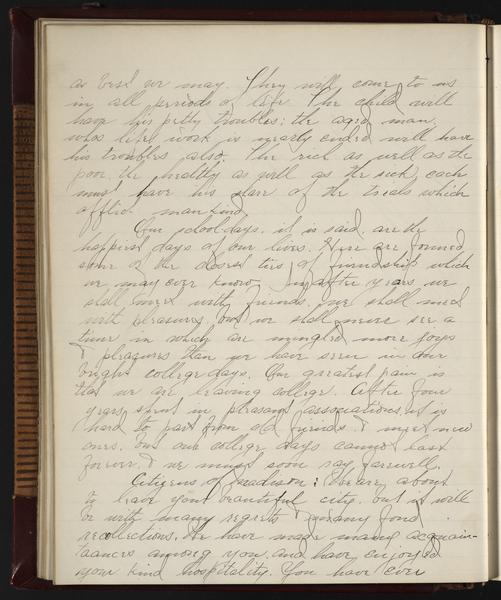 as best we may. They will come to us
in all periods of life. The child will
have his petty troubles; the aged man,
whos life's work is nearly ended will have
his troubles also. The rich as well as the
poor, the healthy as well as the sick, each
must have his share of the trials which
afflict mankind.
Our school days, it is said, are the
happiest days of our lives. Here are formed
some of the closest ties of friendship which
we may ever know. In after years we
shall meet with friends, we shall meet
with pleasures, but we shall never see a
time in which are mingled more joys
& pleasures than we have seen in our
bright college days. Our greatest pain is
that we are leaving college. After four
years spent in pleasant associations, it is
hard to part from old friends & meet new
ones. But our college days cannot last
forever, & we must soon say farewell.
Citizens of Madison: We are about
to leave your beautiful city, but it will
be with many regrets & many fond
recollections. We have made many acquain-
tances among you, and have enjoyed
your kind hospitality. You have ever